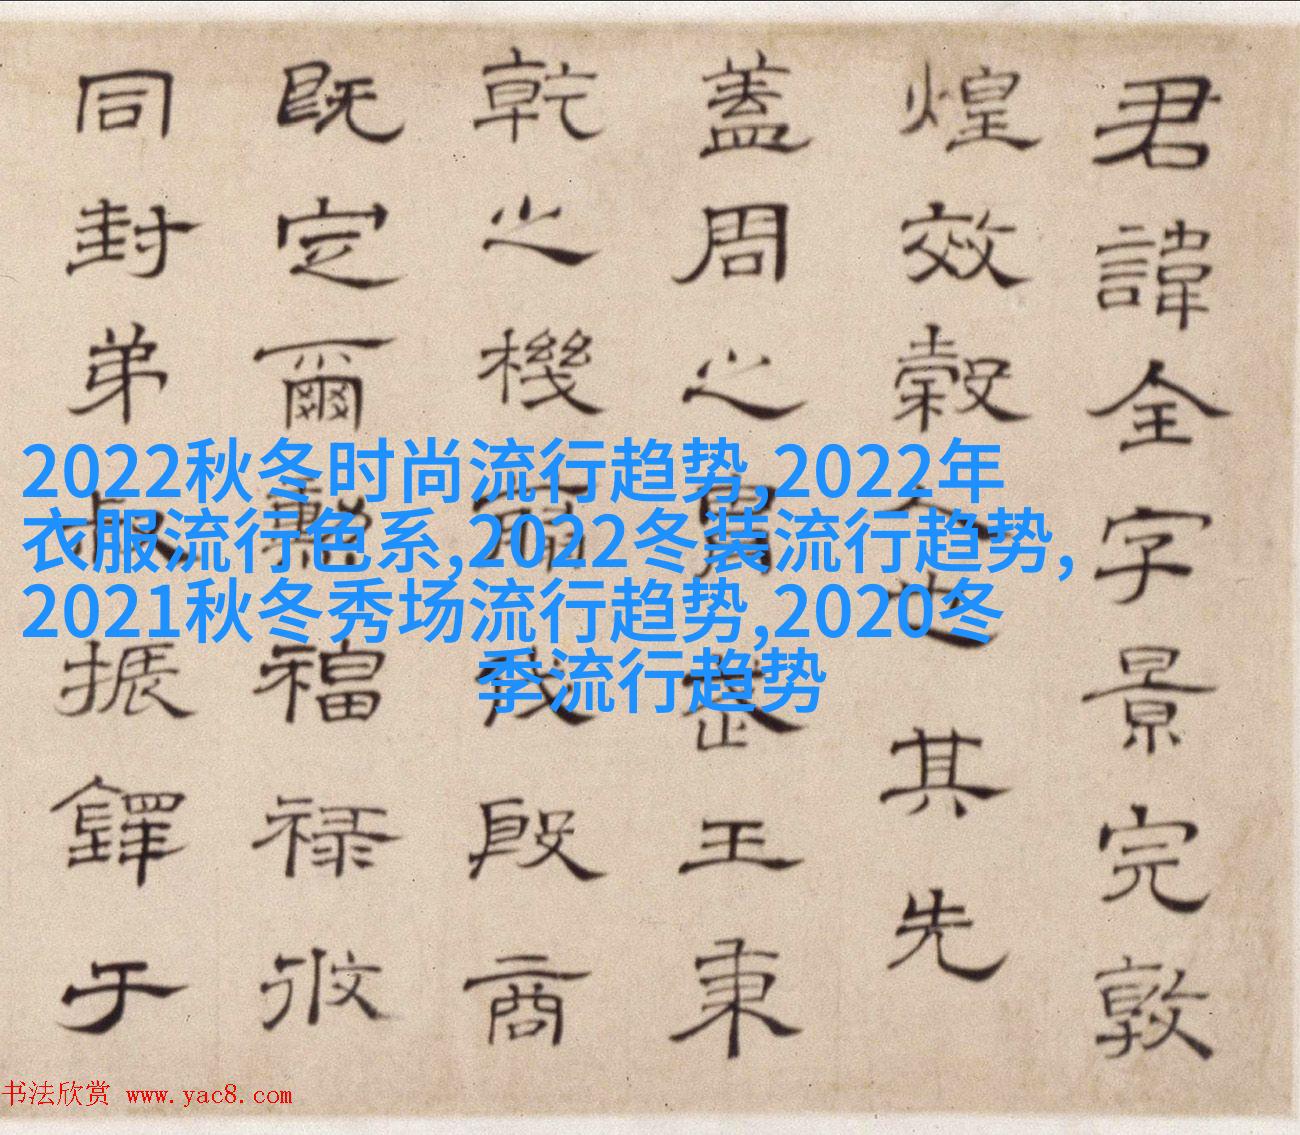 君諱全字景完敦
煌效穀人也其先
蓋周之胄武王秉
乾之機翦伐殷商
既定爾勲福禄攸
同封弟叔振鐸于
2022秋冬时尚流行趋势,2022年
衣服流行色系,2022冬装流行趋势,
2021秋冬秀场流行趋势,2020冬
季流行趋势
书法欣赏 www.yac8.com